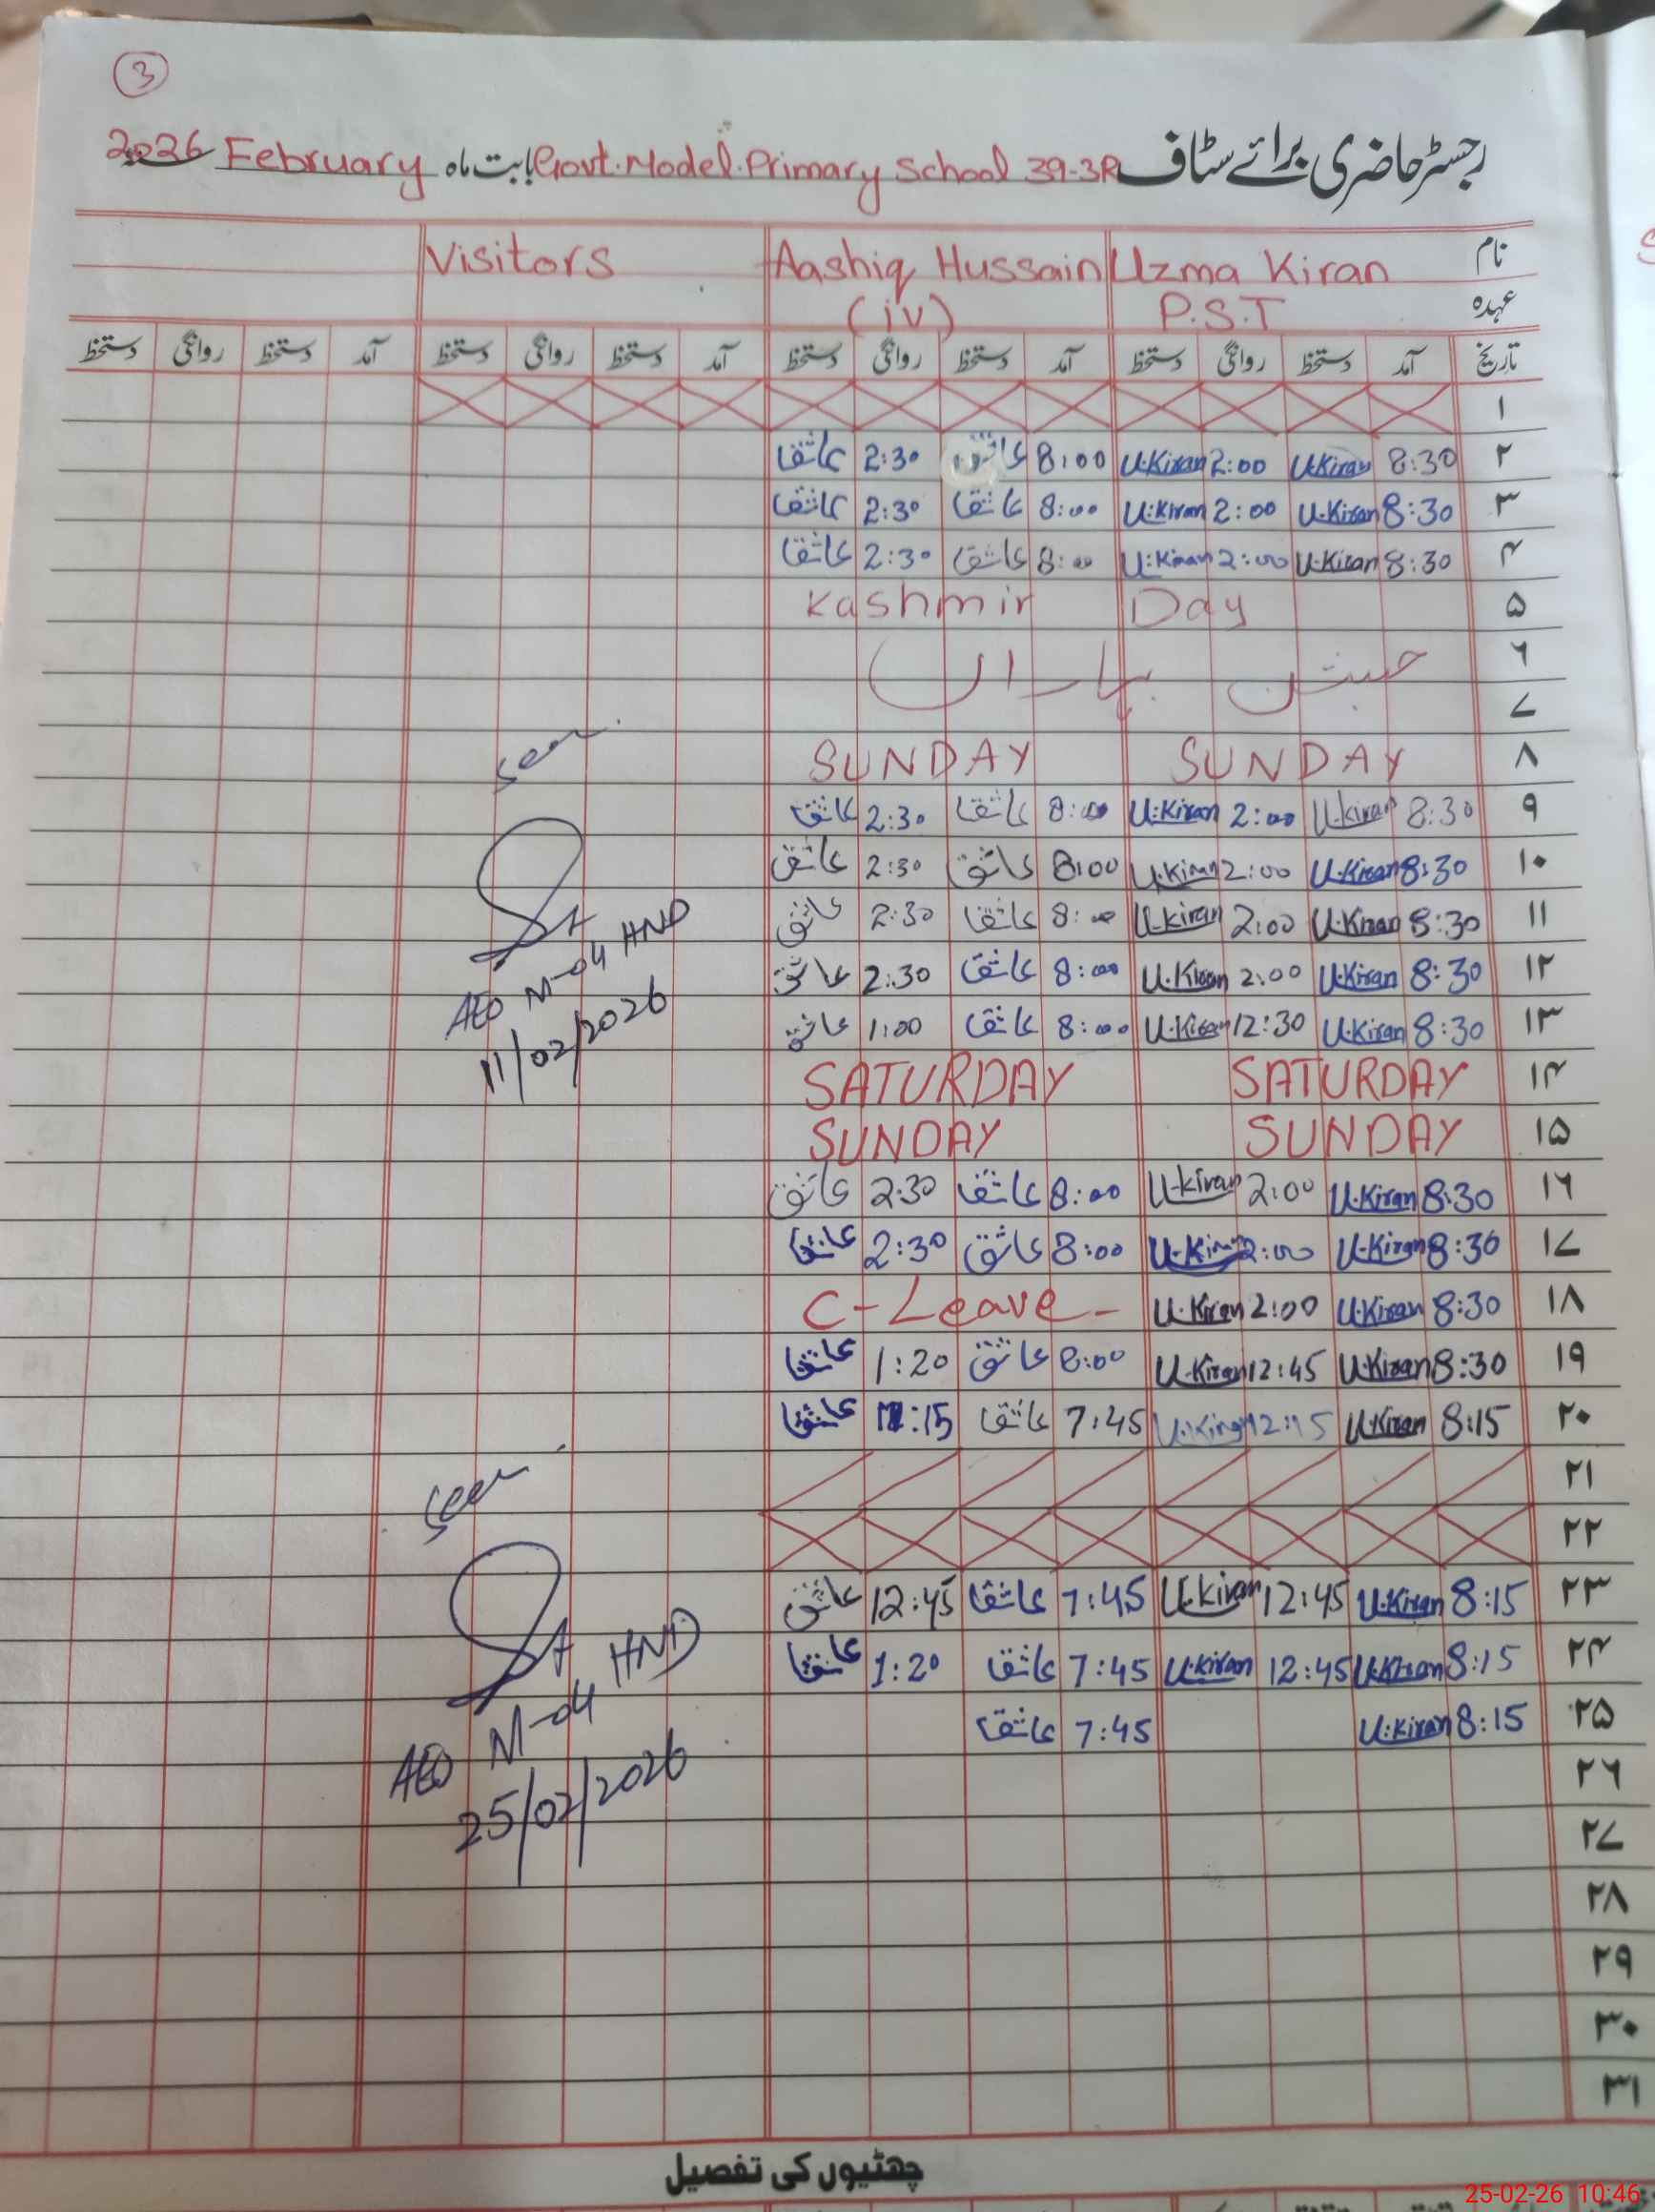 3
رجسٹر حاضری برائے سٹاف Govt. Model. Primary School 39-3R بابت ماہ February 2026
نام Uzma Kiran Aashiq Hussain Visitors
عہدہ P.S.T (iv)
تاریخ آمد دستخط روانگی دستخط آمد دستخط روانگی دستخط آمد دستخط روانگی دستخط آمد دستخط روانگی دستخط
۱
۲ 8:30 U.Kiran 2:00 U.Kiran 8:00 عاشق 2:30 عاشق
۳ 8:30 U.Kiran 2:00 U.Kiran 8:00 عاشق 2:30 عاشق
۴ 8:30 U.Kiran 2:00 U.Kiran 8:00 عاشق 2:30 عاشق
۵ Kashmir Day
۶ جشن بہاراں
۷
۸ SUNDAY SUNDAY
۹ 8:30 U.Kiran 2:00 U.Kiran 8:00 عاشق 2:30 عاشق
۱۰ 8:30 U.Kiran 2:00 U.Kiran 8:00 عاشق 2:30 عاشق
۱۱ 8:30 U.Kiran 2:00 U.Kiran 8:00 عاشق 2:30 عاشق
۱۲ 8:30 U.Kiran 2:00 U.Kiran 8:00 عاشق 2:30 عاشق
۱۳ 8:30 U.Kiran 12:30 U.Kiran 8:00 عاشق 1:00 عاشق
۱۴ SATURDAY SATURDAY
۱۵ SUNDAY SUNDAY
۱۶ 8:30 U.Kiran 2:00 U.Kiran 8:00 عاشق 2:30 عاشق
۱۷ 8:30 U.Kiran 2:00 U.Kiran 8:00 عاشق 2:30 عاشق
۱۸ 8:30 U.Kiran 2:00 U.Kiran C-Leave-
۱۹ 8:30 U.Kiran 12:45 U.Kiran 8:00 عاشق 1:20 عاشق
۲۰ 8:15 U.Kiran 12:15 U.Kiran 7:45 عاشق عاشق
۲۱
۲۲
۲۳ 8:15 U.Kiran 12:45 U.Kiran 7:45 عاشق 12:45 عاشق
۲۴ 8:15 U.Kiran 12:45 U.Kiran 7:45 عاشق 1:20 عاشق
۲۵ 8:15 U.Kiran 7:45 عاشق
۲۶
۲۷
۲۸
۲۹
۳۰
۳۱
seen
AEO M-04 HND
11/02/2026
seen
AEO M-04 HND
25/02/2026
چھٹیوں کی تفصیل
25-02-26 10:46